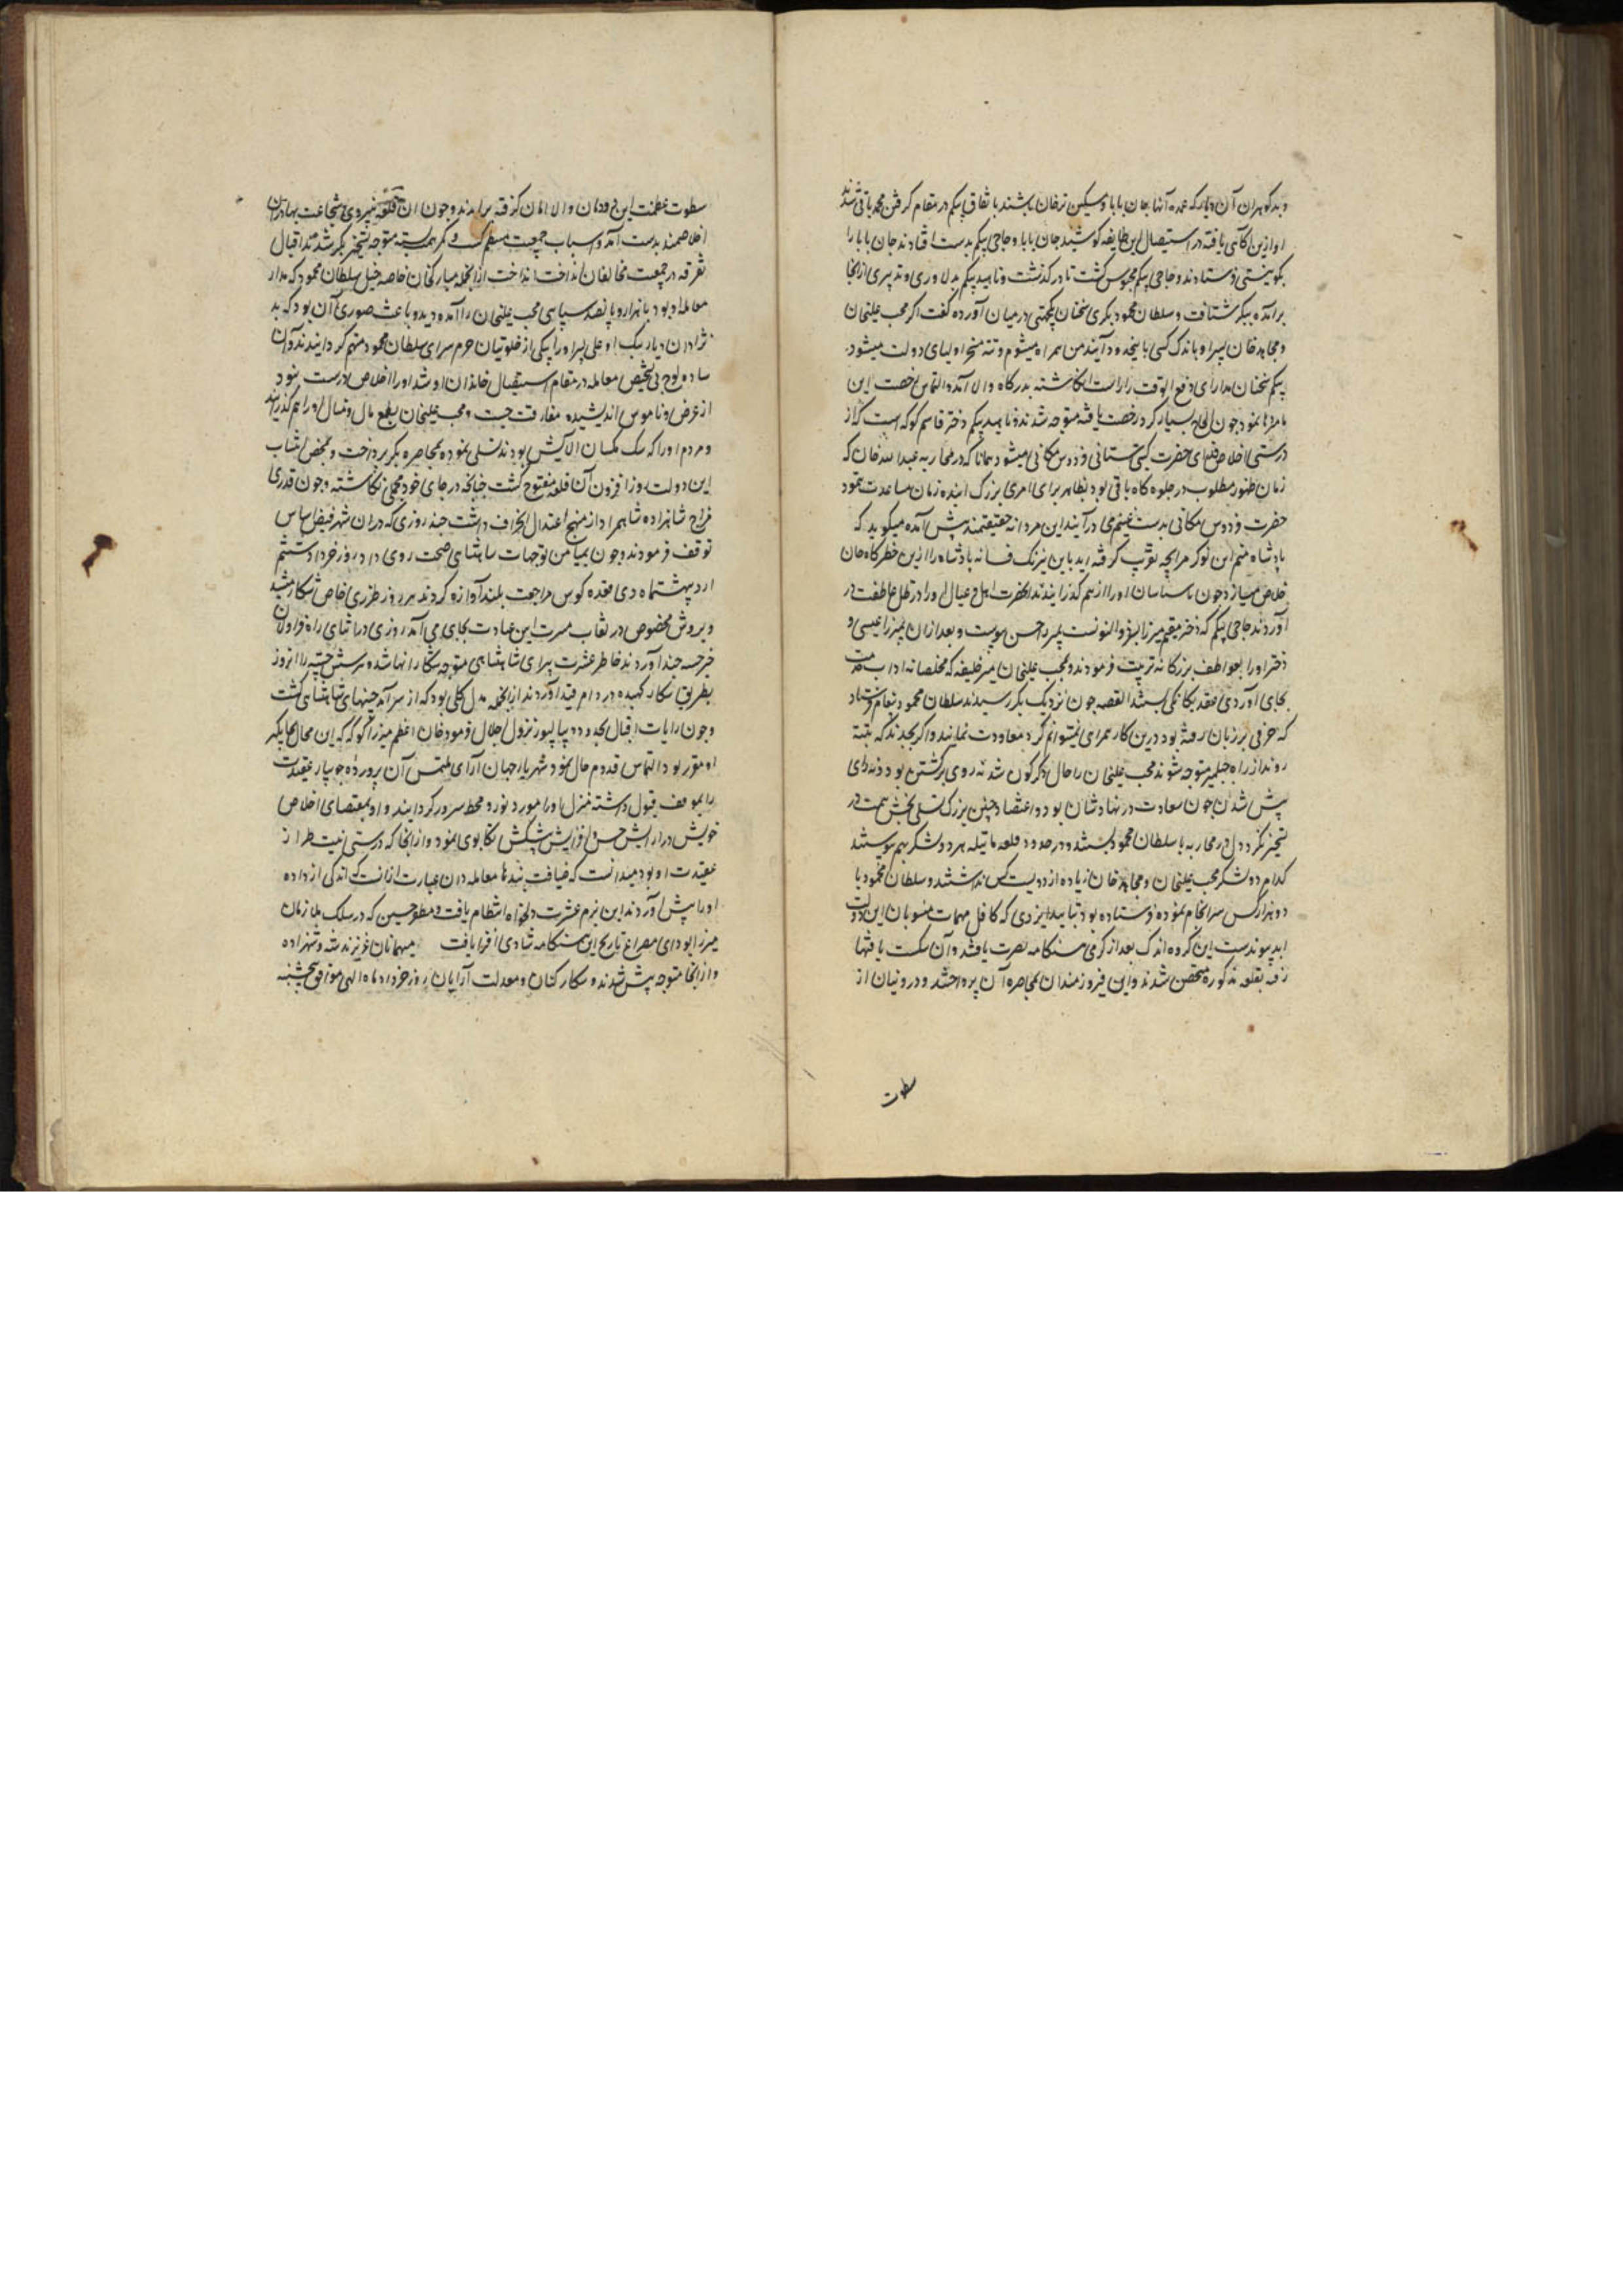 و بدکوهران آن دیار که عمده آنها جان بابا و مسکین ترخان باشند با تفاق بیکم در مقام کرفتن محمد باقی شدند
او ازین آکاهی یافته در استیصال این طایفه کوشید جان بابا و حاجی بیکم بدست افتادند جان بابا را
بکو نیستی فرستادند و حاجی بیکم محبوس کشت تا در کذشت و ناهید بیکم بدلاوری و تدبیری از انجا
برآمده ببکر شتافت و سلطان محمود بکری سخنان یکجهتی در میان آورده کفت اکر محب علیخان
و مجاهد خان پسر او باندک کسی باینحدود آیند من همراه میشوم و تته مسخر اولیای دولت میشود
بیکم سخنان مدارای دفع الوقت را راست انکاشته بدرکاه والا آمد و التماس رخصت این
نامرد ها نمود چون الحاح بسیار کرد رخصت یافته متوجه شدند و ناهید بیکم دختر قاسم کوکه است که از
درستی اخلاص فدای حضرت کیتی ستانی فردوس مکانی میشود همانا که در محاربه عبید الله خان که
زمان ظهور مطلوب در جلوه کاه باقی بود بظاهر برای امری بزرک اینده زمان مساعدت ننمود
حضرت فردوس مکانی بدست غنیم می در آیند این مردانه حقیقتمند پیش آمده میکوید که
پادشاه منم این نوکر مرا بچه تقریب کرفته اید باین نیرنک فسانه پادشاه را ازین خطرکاه جان
خلاص میسازد چون ناسپاسان او را از هم کذرانیدند انحضرت اهل و عیال او را در ظل عاطفت در
آوردند حاجی بیکم که دختر مقیم میرزا پسر ذو النونست بمیرزا حسن پیوست و بعد ازان بمیرزا عیسی و
دختر او را بعواطف بزرکانه تربیت فرمودند و بمحب علیخان میر خلیفه که مخلصانه اداب خدمت
بجای آوردی عقد یکانکی بستند القصه چون نزدیک بکر رسیدند سلطان محمود پیغام فرستاد
که حرفی بر زبان رفته بود درین کار همراهی نمیتوانم کرد معاودت نمایند و اکر بجدند که بتته
روند از راه جیلمیر متوجه شوند محب علیخان را حال دکرکون شد نه روی برکشتن بود و نه رای
پیش شدن چون سعادت در نهاد شان بود و اعتضاد چنین بزرک تسلی بخش همت در
تسخیر بکر و دل در محاربه با سلطان محمود بستند و در حدود قلعه ماتیله هر دو لشکر بهم پیوستند
کدام دو لشکر محب علیخان و مجاهد خان زیاده از دویست کس نداشتند و سلطان محمود با
دو هزار کس سرانجام نموده فرستاده بود بتایید ایزدی که کافل مهمات منسوبان این دولت
ابد پیوندست این کروه اندک بعد از کرمی هنکامه نصرت یافتند و آن شکست یافتها
رفته بقلعه مذکوره متحصن شدند و این فیروزمندان بمحاصره آن پرداختند و درونیان از
سطوت
سطوت عظمت این دودمان والا امان کرفته برامدند و چون ان قلعه بنیروی شجاعت بهادران
اخلاصمند بدست آمد و اسباب جمعیت منتظم کشت و کمر همت بسته متوجه تسخیر بکر شدند اقبال
تفرقه در جمعیت مخالفان انداخت ازانجمله مبارکخان خاصه خیل سلطان محمود که مدار
معامله او بود با هزار و پانصد سپاهی محب علیخان را آمده دید و باعث صوری آن بود که بد
نژادان دیار بیک اوغلی پسر او را بیکی از خلوتیان حرم سرای سلطان محمود متهم کردانیدند و آن
ساده لوح بی تشخیص معامله در مقام استیصال خاندان او شد او را اخلاص درست نبود
از عرض و ناموس اندیشیده مفارقت جست و محب علیخان بطمع مال و منال او را هم کذرانید
و مردم او را که سک مکسان آلایش بودند تسلی نموده بمحاصره بکر پرداخت و بمحض انتساب
این دولت روز افزون آن قلعه مفتوح کشت چنانکه در جای خود مجملی نکاشته و چون قدری
مزاج شاهزاده شاهمراد از منهج اعتدال انحراف داشت چند روزی که دران شهر فیض اساس
توقف فرمودند و چون بمیامن توجهات شاهنشاهی صحت روی داد روز خرداد ششم
اردیبهشت ماه دی قعده کوس مراجعت بلند آوازه کردند هر روز طرزی خاص شکار میشد
و بروش مخصوص در نقاب مسرت این عبادت بجای می آمد روزی در اثنای راه قراولان
خبر خسه چند آوردند خاطر عشرت پیرای شاهنشاهی متوجه شکار انها شده و شش چیته را انروز
بطریق شکار کهیده در دام قید آوردند ازانجمله مدل کلی بود که از سرآمد چیتهای شاهنشاهی کشت
و چون رایات اقبال بحدود دیپالپور نزول اجلال فرمود خان اعظم میرزا کوکه که این محال بجایکیر
او مقرر بود التماس قدوم حال نمود شهریار جهان آرای ملتمس آن پرورده جویبار عقیدت
را بموقف قبول داشته منزل او را مورد نور و محط سرور کردانیدند و او بمقتضای اخلاص
خویش در آرایش جشن و افزایش پیشکش تکاپوی نمود و از انجا که درستی نیت طراز
عقیدت او بود میدانست که ضیافت بندها معامله دان عبارت ازانست که اندکی از داده
او را پیش آوردند این بزم عشرت دلخواه انتظام یافت و مظفر حسین که در سلک ملازمان
میرزا بود این مصراع تاریخ این هنکامه شادی افزا یافت میهمانان عزیزند شه و شهزاده
و از انجا متوجه پیش شدند و شکار کنان و معدلت آرایان روز خرداد ماه الهی موافق پنجشنبه